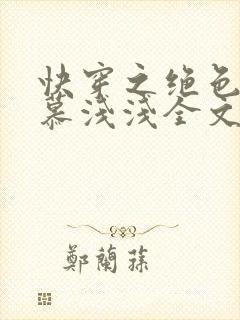 快穿之绝色
慕浅浅全文
鄭蘭蓀